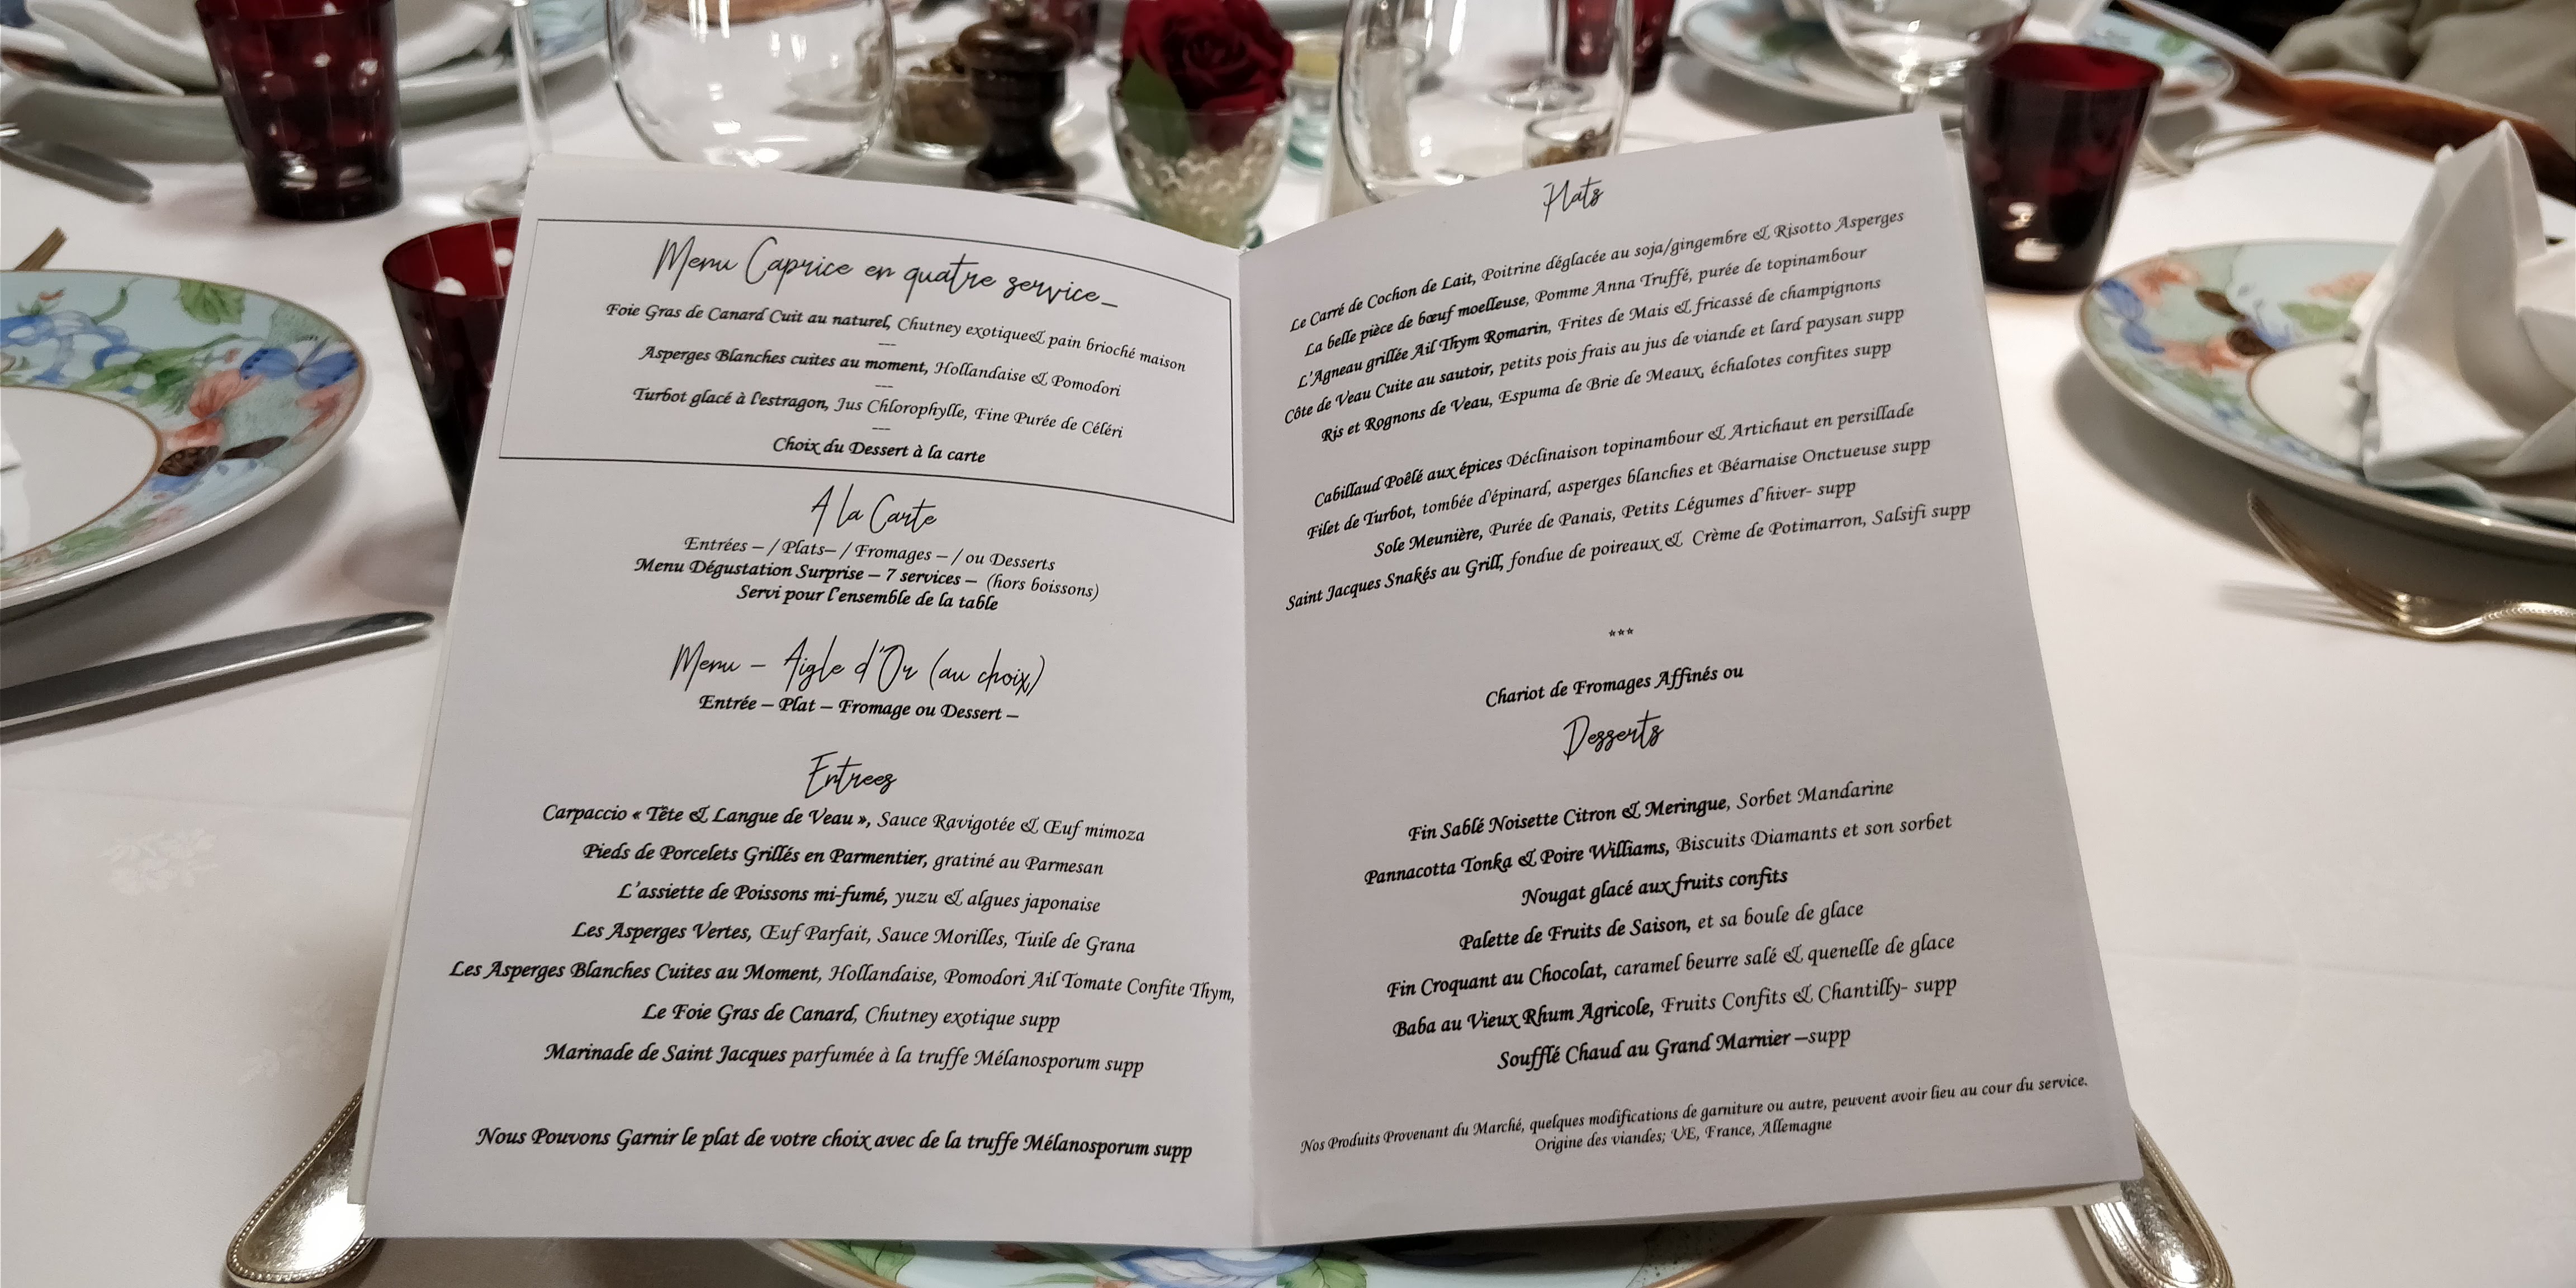 Menu Caprice en quatre service_
Foie Gras de Canard Cuit au naturel, Chutney exotique& pain brioché maison
---
Asperges Blanches cuites au moment, Hollandaise & Pomodori
---
Turbot glacé à l'estragon, Jus Chlorophylle, Fine Purée de Céléri
---
Choix du Dessert à la carte
A la Carte
Entrées – / Plats– / Fromages – / ou Desserts
Menu Dégustation Surprise – 7 services – (hors boissons)
Servi pour l'ensemble de la table
Menu – Aigle d'Or (au choix)
Entrée – Plat – Fromage ou Dessert –
Entrees
Carpaccio « Tête & Langue de Veau », Sauce Ravigotée & Œuf mimoza
Pieds de Porcelets Grillés en Parmentier, gratiné au Parmesan
L'assiette de Poissons mi-fumé, yuzu & algues japonaise
Les Asperges Vertes, Œuf Parfait, Sauce Morilles, Tuile de Grana
Les Asperges Blanches Cuites au Moment, Hollandaise, Pomodori Ail Tomate Confite Thym,
Le Foie Gras de Canard, Chutney exotique supp
Marinade de Saint Jacques parfumée à la truffe Mélanosporum supp
Nous Pouvons Garnir le plat de votre choix avec de la truffe Mélanosporum supp
Plats
Le Carré de Cochon de Lait, Poitrine déglacée au soja/gingembre & Risotto Asperges
La belle pièce de bœuf moelleuse, Pomme Anna Truffé, purée de topinambour
L'Agneau grillée Ail Thym Romarin, Frites de Mais & fricassé de champignons
Côte de Veau Cuite au sautoir, petits pois frais au jus de viande et lard paysan supp
Ris et Rognons de Veau, Espuma de Brie de Meaux, échalotes confites supp
Cabillaud Poêlé aux épices Déclinaison topinambour & Artichaut en persillade
Filet de Turbot, tombée d'épinard, asperges blanches et Béarnaise Onctueuse supp
Sole Meunière, Purée de Panais, Petits Légumes d'hiver- supp
Saint Jacques Snakés au Grill, fondue de poireaux & Crème de Potimarron, Salsifi supp
***
Chariot de Fromages Affinés ou
Desserts
Fin Sablé Noisette Citron & Meringue, Sorbet Mandarine
Pannacotta Tonka & Poire Williams, Biscuits Diamants et son sorbet
Nougat glacé aux fruits confits
Palette de Fruits de Saison, et sa boule de glace
Fin Croquant au Chocolat, caramel beurre salé & quenelle de glace
Baba au Vieux Rhum Agricole, Fruits Confits & Chantilly- supp
Soufflé Chaud au Grand Marnier –supp
Nos Produits Provenant du Marché, quelques modifications de garniture ou autre, peuvent avoir lieu au cour du service.
Origine des viandes; UE, France, Allemagne